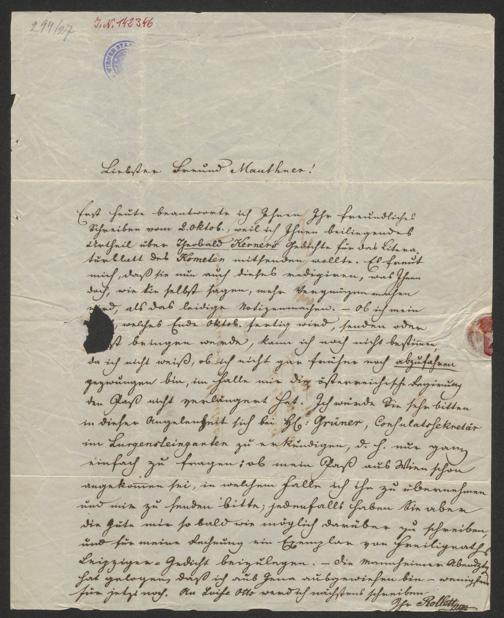 294/27
J.N. 142346
Liebster Freund Mauthner!
Erst heute beantworte ich Ihnen Ihr freundliches
Schreiben vom 2. Oktob., weil ich Ihnen beiliegendes
Urtheil über Theobald Kerners Gedichte für das Litera-
turblatt des Kometen mitsenden wollte. Es freut
mich, daß Sie nun auch dieses redigiren, was Ihnen
doch, wie Sie selbst sagen, mehr Vergnügen machen
wird, als das leidige Notizenmachen. – Ob ich mein
welches Ende Oktob. fertig wird, senden oder
bringen werde, kann ich noch nicht bestimen,
da ich nicht weiß, ob ich nicht gar früher noch abzufahren
gezwungen bin, im Falle mir die österreichische Regierung
den Paß nicht verlängert hat. Ich würde Sie sehr bitten
in dieser Angelegenheit sich bei H: Grüner, Consulatssekretär
im Lurgensteingarten zu erkundigen, d. h. nur ganz
einfach zu fragen; ob mein Paß aus Wien schon
angekommen sei, in welchem Falle ich ihn zu übernehmen
und mir zu senden bitte; jedenfalls haben Sie aber
die Güte mir so bald wie möglich darüber zu schreiben,
und für meine Rechnung ein Exemplar von Freiligraths
Leipziger Gedicht beizulegen. – Die Mannheimer Abendztg
hat gelogen, daß ich aus Jena ausgewiesen bin – wenigstens
für jetzt noch. An Luise Otto werd ich nächstens schreiben
Ihr Rollett